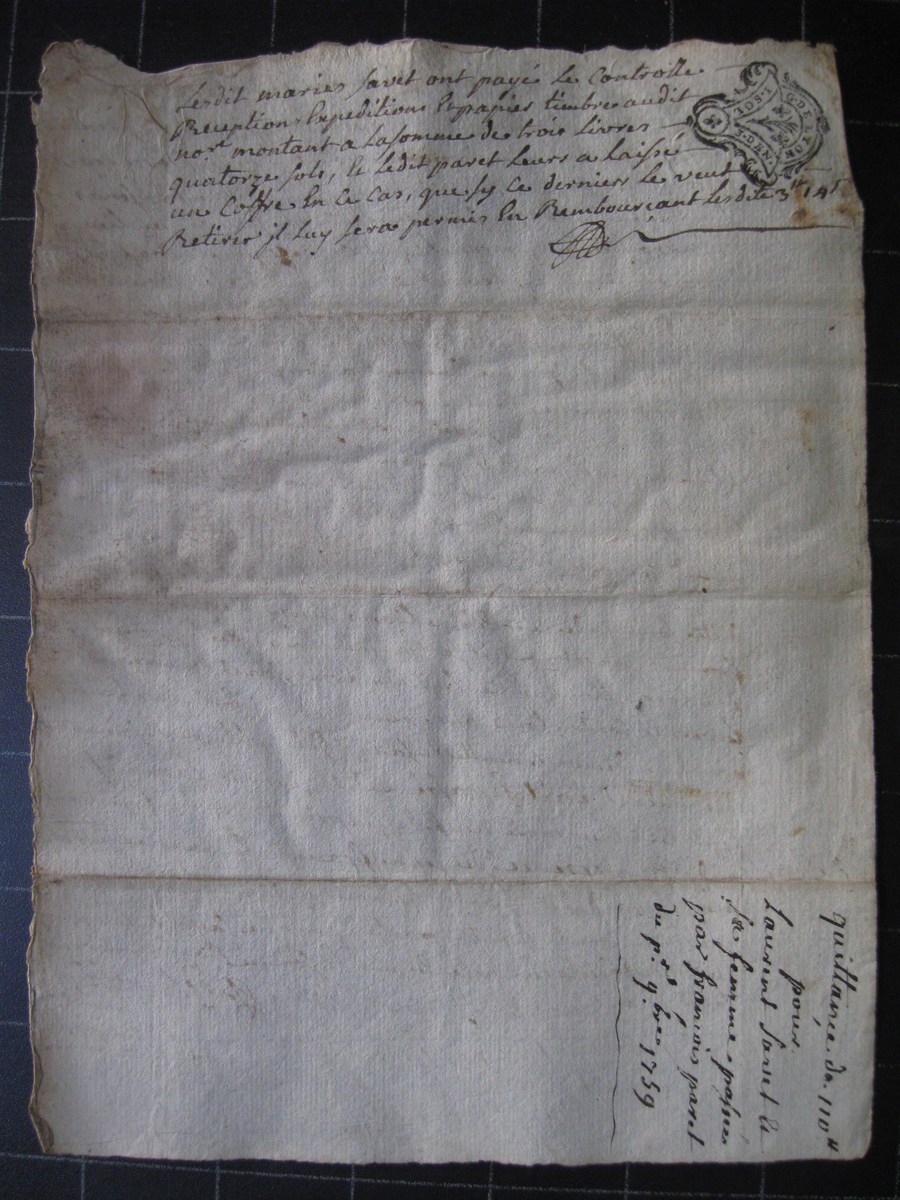 Lesdit mariés savet ont payé le Controlle
Receptions Expeditions Et papier timbre audit
no.re montant a la somme de trois livres
quatorze sols, et ledit paret leurs a laissé
un Coffre En ce cas, que sy ce dernier le veut
Retirer il luy sera permis En Rembourçant lesdite 3tt 14s
1 SOL
G. DE LYON
quittance de 110tt
pour
Laurent Savet et
Sa femme passée
par francois paret
du pr. 9.bre 1759